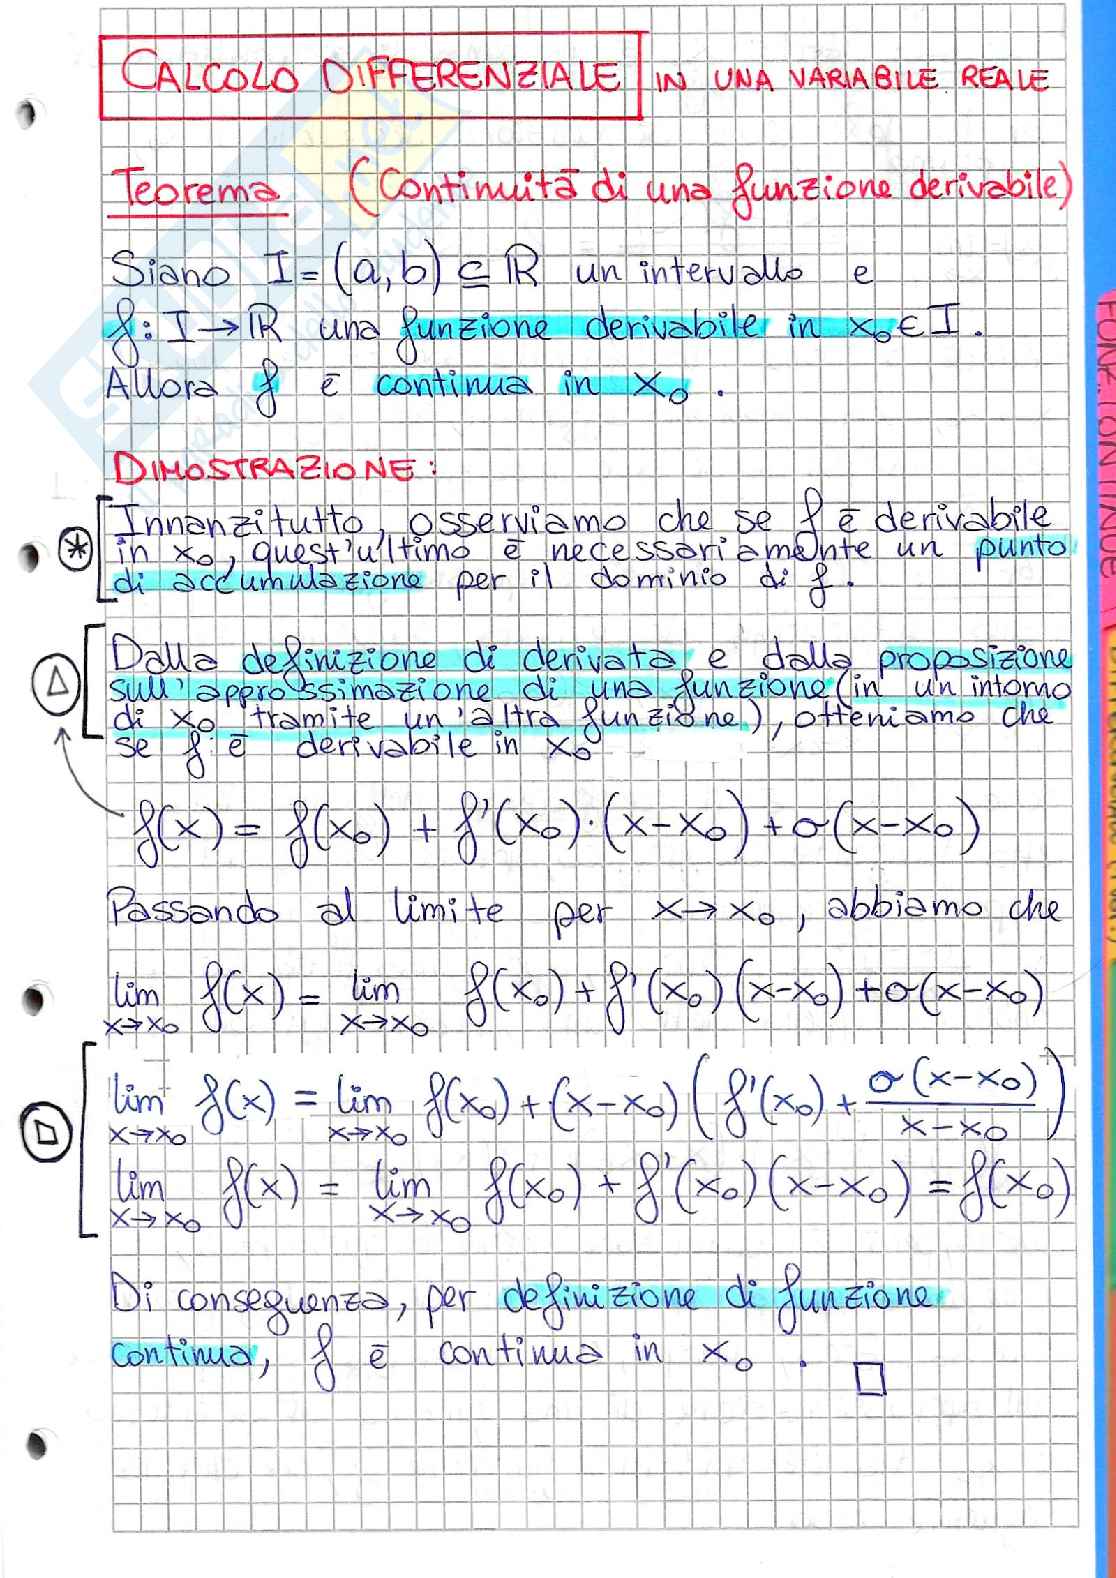 CALCOLO DIFFERENZIALE IN UNA VARIABILE REALE
Teorema (Continuità di una funzione derivabile)
Siano I = (a, b) ⊆ ℝ un intervallo e
f: I → ℝ una funzione derivabile in x₀ ∈ I.
Allora f è continua in x₀.
DIMOSTRAZIONE:
Innanzitutto, osserviamo che se f è derivabile
in x₀, quest'ultimo è necessariamente un punto
di accumulazione per il dominio di f.
Dalla definizione di derivata e dalla proposizione
sull'approssimazione di una funzione (in un intorno
di x₀ tramite un'altra funzione), otteniamo che
se f è derivabile in x₀
f(x) = f(x₀) + f'(x₀)·(x-x₀) + o(x-x₀)
Passando al limite per x → x₀, abbiamo che
lim x→x₀ f(x) = lim x→x₀ f(x₀) + f'(x₀)(x-x₀) + o(x-x₀)
lim x→x₀ f(x) = lim x→x₀ f(x₀) + (x-x₀) (f'(x₀) + o(x-x₀)/(x-x₀))
lim x→x₀ f(x) = lim x→x₀ f(x₀) + f'(x₀)(x-x₀) = f(x₀)
Di conseguenza, per definizione di funzione
continua, f è continua in x₀. □